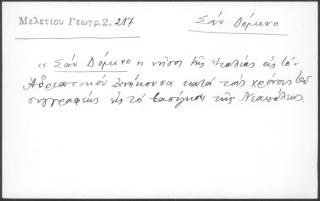 Μελετίου Γεωγρ 2, 217
Σάν Δόμινο
« Σάν Δόμινο η νήσος της Ιταλίας εις τόν
Αδριατικόν ανήκουσα κατά τούς χρόνους του
συγγραφέως εις τό βασίλειον της Νεαπόλεως.